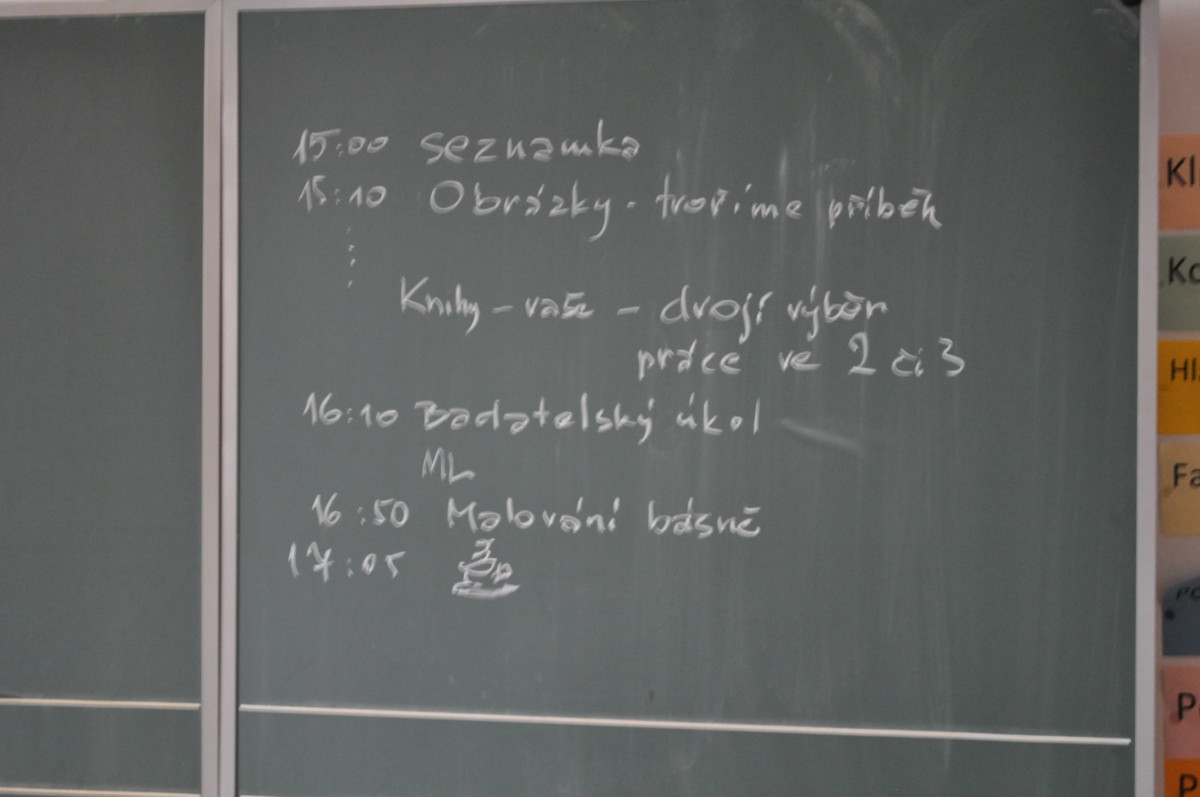 15:00 seznamka
15:10 Obrázky - tvoříme příběh
Knihy - vaše - dvojí výběr
práce ve 2 či 3
16:10 Badatelský úkol
ML
16:50 Malování básně
17:05
Kl
Ko
Hl
Fa
PO
P
P